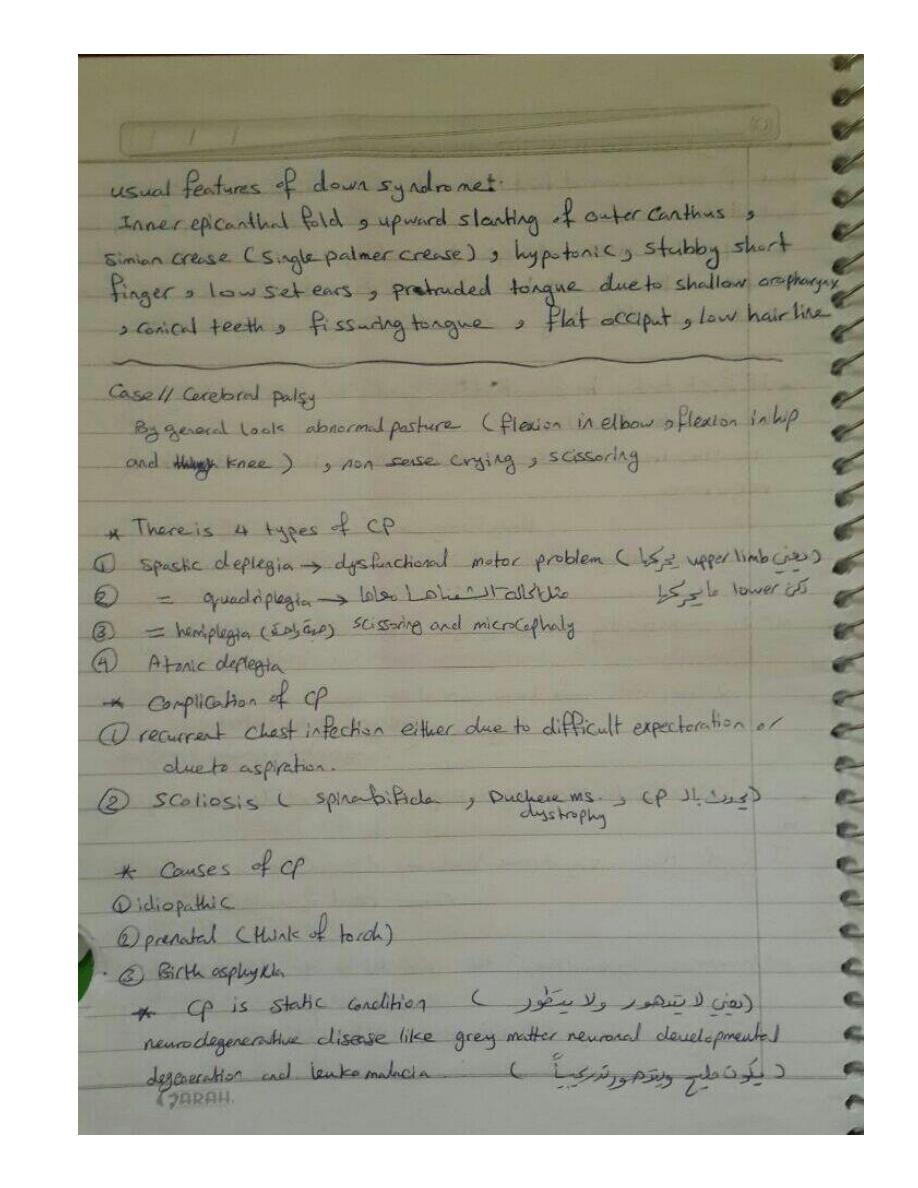 usual features of down syndromet:
Inner epicanthal fold , upward slanting of outer canthus ,
Simian crease (Single palmer crease) , hypotonic , stubby short
finger , low set ears , protruded tongue due to shallow oropharynx
, conical teeth , fissuring tongue , flat occiput , low hair line
Case// Cerebral palsy
By general look abnormal posture (flexion in elbow , flexion in hip
and knee) , non sense crying , scissoring
* There is 4 types of CP
① spastic deplegia → dysfunctional motor problem (يعني يحركها upper limb)
② = quadriplegia → مثل الحالة الشفناها لكن lower مايحركها
③ = hemiplegia ( ) scissoring and microcephaly
④ Atonic deplegia
* Complication of CP
① recurrent chest infection either due to difficult expectoration or
due to aspiration.
② Scoliosis ( spinabifida , Duchene ms. dystrophy , CP يحدث بال)
* Causes of CP
① idiopathic
② prenatal (think of torch)
③ Birth asphyxia
* CP is static condition (يعني لا يتدهور ولا يتطور)
neurodegenerative disease like grey matter neuronal developmental
degeneration and leukomalacia (يكون مليح ويتدهور تدريجياً)
SARAH.